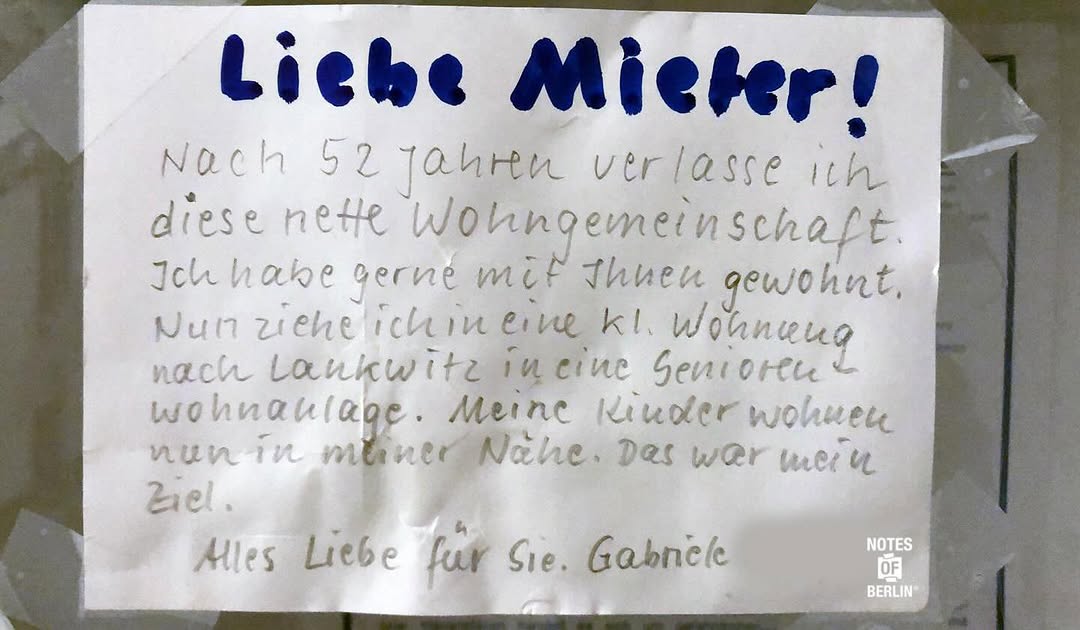 Liebe Mieter!
Nach 52 Jahren verlasse ich
diese nette Wohngemeinschaft.
Ich habe gerne mit Ihnen gewohnt.
Nun ziehe ich in eine kl. Wohnung
nach Lankwitz in eine Senioren-
wohnanlage. Meine Kinder wohnen
nun in meiner Nähe. Das war mein
Ziel.
Alles Liebe für Sie. Gabriele
NOTES
OF
BERLIN